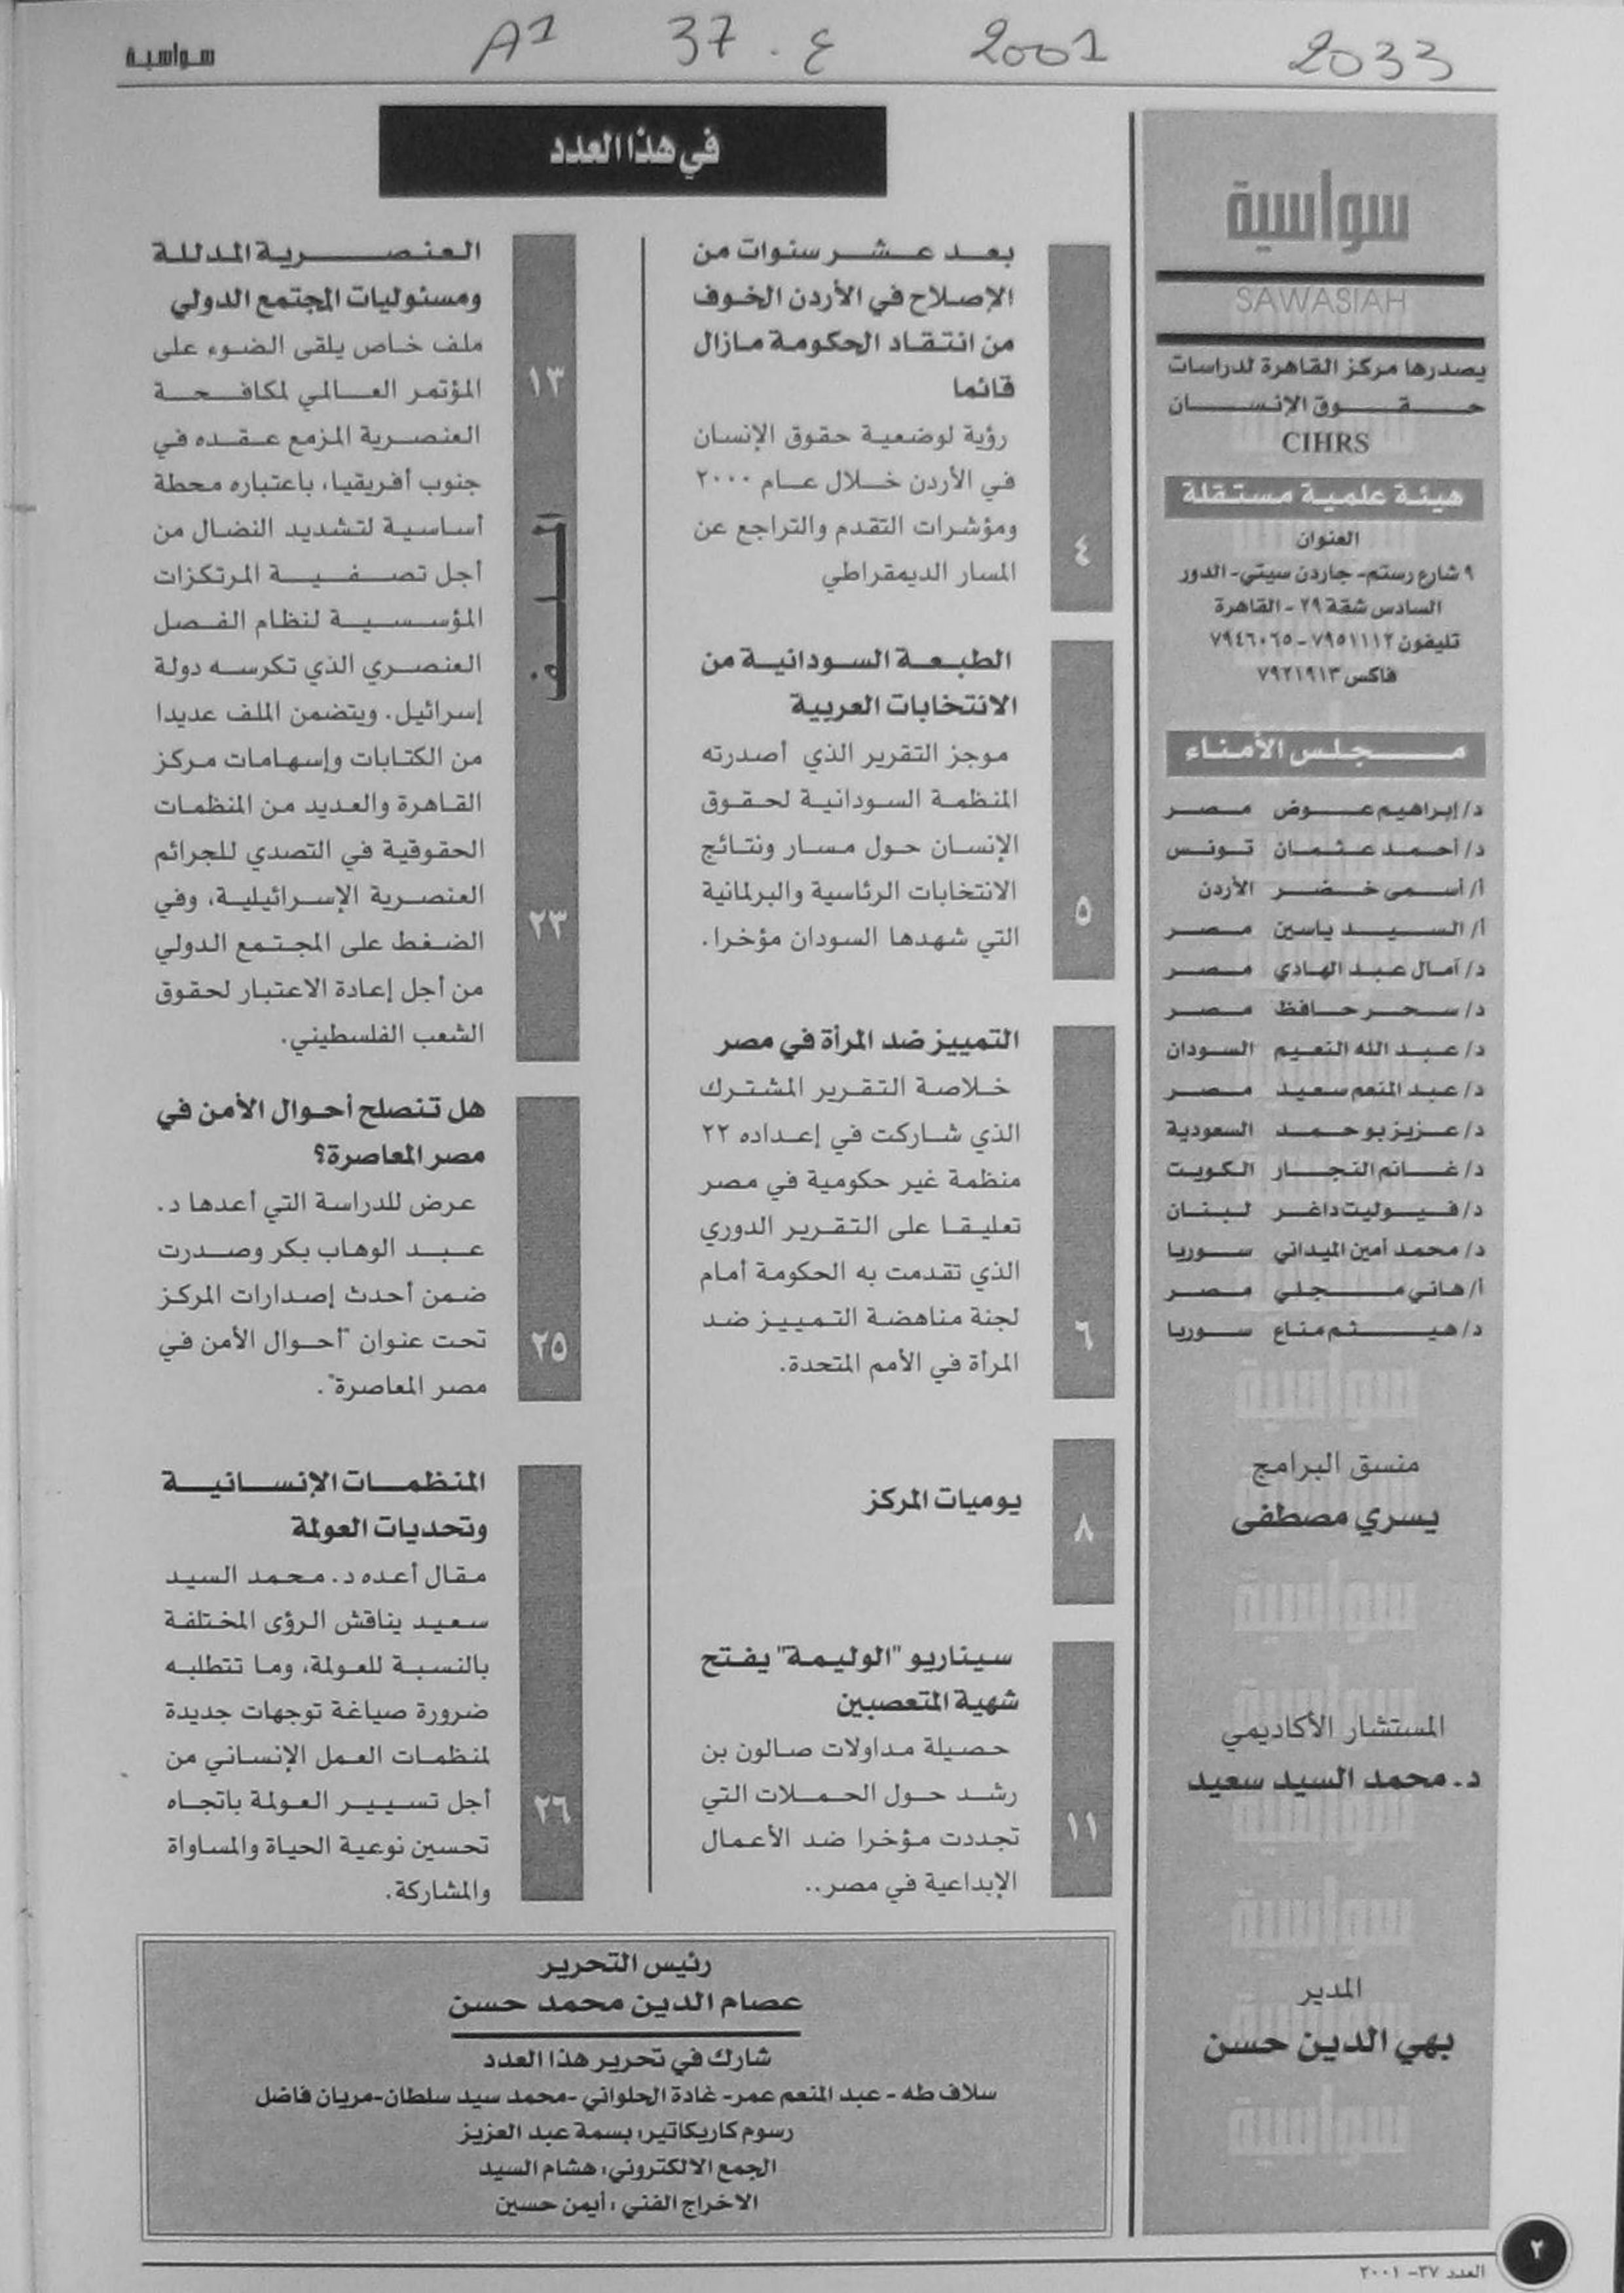 سواسية
A1 37 ع. 2001 2033
سواسية
SAWASIAH
يصدرها مركز القاهرة لدراسات
حقوق الإنسان
CIHRS
هيئة علمية مستقلة
العنوان
٩ شارع رستم- جاردن سيتي- الدور
السادس شقة ٢٩ - القاهرة
تليفون ٧٩٥١١١٢ - ٧٩٤٦٠٦٥
فاكس ٧٩٢١٩١٣
مجلس الأمناء
د/ إبراهيم عوض مصر
د/ أحمد عثمان تونس
أ/ أسمى خضر الأردن
أ/ السيد ياسين مصر
د/ آمال عبد الهادي مصر
د/ سحر حافظ مصر
د/ عبد الله النعيم السودان
د/ عبد المنعم سعيد مصر
د/ عزيز بو حمد السعودية
د/ غانم النجار الكويت
د/ فيوليت داغر لبنان
د/ محمد أمين الميداني سوريا
أ/ هاني مجلي مصر
د/ هيثم مناع سوريا
منسق البرامج
يسري مصطفى
المستشار الأكاديمي
د. محمد السيد سعيد
المدير
بهي الدين حسن
في هذا العدد
بعد عشر سنوات من
الإصلاح في الأردن الخوف
من انتقاد الحكومة مازال
قائما
رؤية لوضعية حقوق الإنسان
في الأردن خلال عام ٢٠٠٠
ومؤشرات التقدم والتراجع عن
المسار الديمقراطي
٤
الطبعة السودانية من
الانتخابات العربية
موجز التقرير الذي أصدرته
المنظمة السودانية لحقوق
الإنسان حول مسار ونتائج
الانتخابات الرئاسية والبرلمانية
التي شهدها السودان مؤخرا.
٥
التمييز ضد المرأة في مصر
خلاصة التقرير المشترك
الذي شاركت في إعداده ٢٢
منظمة غير حكومية في مصر
تعليقا على التقرير الدوري
الذي تقدمت به الحكومة أمام
لجنة مناهضة التمييز ضد
المرأة في الأمم المتحدة.
٦
يوميات المركز
٨
سيناريو "الوليمة" يفتح
شهية المتعصبين
حصيلة مداولات صالون بن
رشد حول الحملات التي
تجددت مؤخرا ضد الأعمال
الإبداعية في مصر..
١١
العنصرية المدللة
ومسئوليات المجتمع الدولي
ملف خاص يلقى الضوء على
المؤتمر العالمي لمكافحة
العنصرية المزمع عقده في
جنوب أفريقيا، باعتباره محطة
أساسية لتشديد النضال من
أجل تصفية المرتكزات
المؤسسية لنظام الفصل
العنصري الذي تكرسه دولة
إسرائيل. ويتضمن الملف عديدا
من الكتابات وإسهامات مركز
القاهرة والعديد من المنظمات
الحقوقية في التصدي للجرائم
العنصرية الإسرائيلية، وفي
الضغط على المجتمع الدولي
من أجل إعادة الاعتبار لحقوق
الشعب الفلسطيني.
١٣
الملف
٢٣
هل تنصلح أحوال الأمن في
مصر المعاصرة؟
عرض للدراسة التي أعدها د.
عبد الوهاب بكر وصدرت
ضمن أحدث إصدارات المركز
تحت عنوان "أحوال الأمن في
مصر المعاصرة".
٢٥
المنظمات الإنسانية
وتحديات العولمة
مقال أعده د. محمد السيد
سعيد يناقش الرؤى المختلفة
بالنسبة للعولمة، وما تتطلبه
ضرورة صياغة توجهات جديدة
لمنظمات العمل الإنساني من
أجل تسيير العولمة باتجاه
تحسين نوعية الحياة والمساواة
والمشاركة.
٢٦
رئيس التحرير
عصام الدين محمد حسن
شارك في تحرير هذا العدد
سلاف طه - عبد المنعم عمر- غادة الحلواني -محمد سيد سلطان-مريان فاضل
رسوم كاريكاتير: بسمة عبد العزيز
الجمع الالكتروني: هشام السيد
الاخراج الفني : أيمن حسين
العدد ٣٧- ٢٠٠١
٢